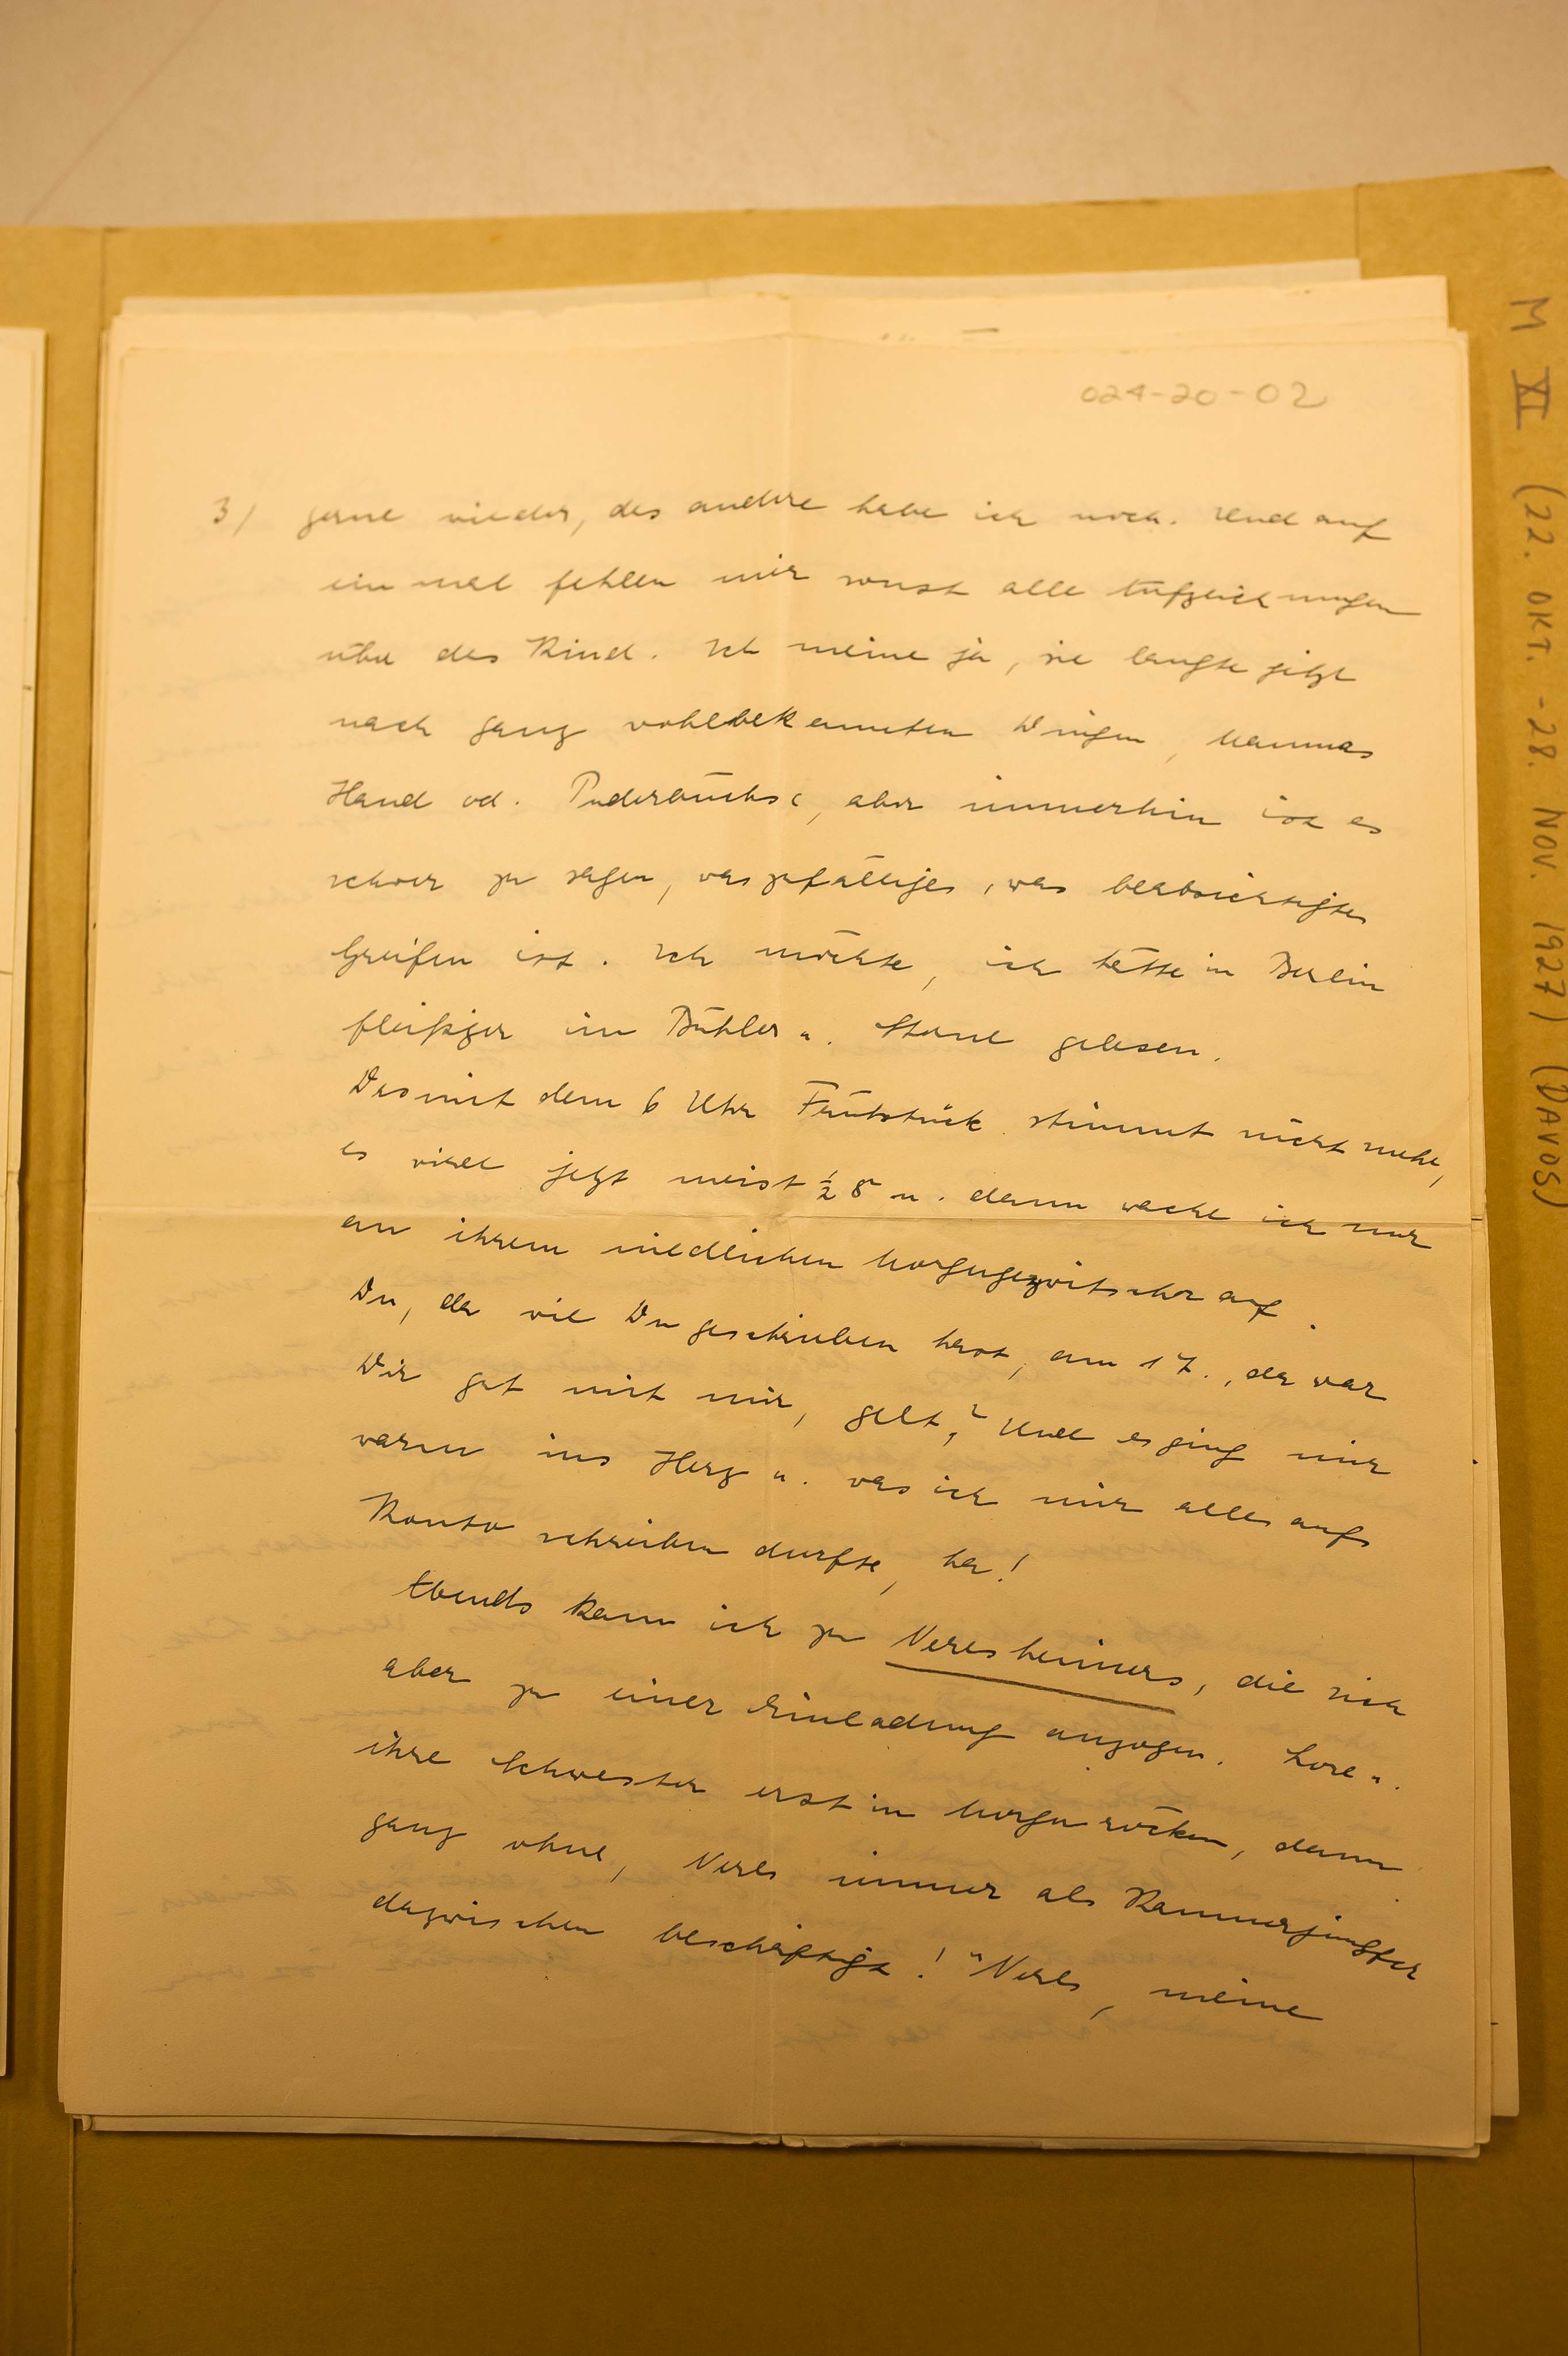 024-20-02
3) gerne wieder, das andere habe ich noch. Und auf
ein mal fehlen mir sonst alle Aufzeichnungen
über das Kind. Ich meine ja, sie langte jetzt
nach ganz wohlbekannten Dingen, Mammas
Hand od. Puderbüchse, aber immerhin ist es
schwer zu sagen, was zufälliges, was beabsichtigtes
Greifen ist. Ich möchte, ich hätte in Berlin
fleißiger im Bühler u. Stone gelesen.
Das mit dem 6 Uhr Frühstück stimmt nicht mehr,
es wird jetzt meist ½ 8 u. dann wache ich nur
an ihrem niedlichen Morgengezwitscher auf.
Du, da wie Du geschrieben hast, am 17., da war
Dir gut mit mir, gelt? Und es ging mir
warm ins Herz u. was ich mir alles aufs
Konto schreiben durfte, ha!
Abends kam ich zu Neresheimers, die sich
aber zu einer Einladung anzogen. Lore u.
ihre Schwester erst in Morgenröcken, dann
ganz ohne, Neres immer als Kammerjungfer
dazwischen beschäftigt! "Neres, meine
M XI (22. OKT. - 28. NOV. 1927) (DAVOS)